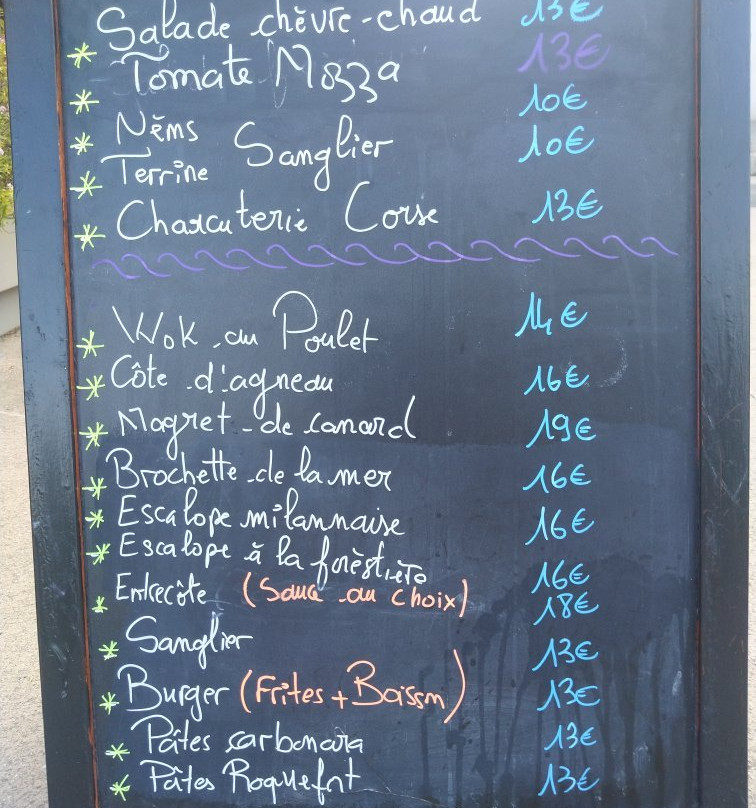 * Salade chèvre-chaud 13€
* Tomate Mozza 13€
* Něms 10€
* Terrine Sanglier 10€
* Charcuterie Corse 13€
* Wok au Poulet 14€
* Côte d'agneau 16€
* Magret-de canard 19€
* Brochette de la mer 16€
* Escalope milannaise 16€
* Escalope à la forèstière 16€
* Entrecôte (Sauce au choix) 18€
* Sanglier 13€
* Burger (Frites + Boisson) 13€
* Pâtes carbonara 13€
* Pâtes Roquefort 13€